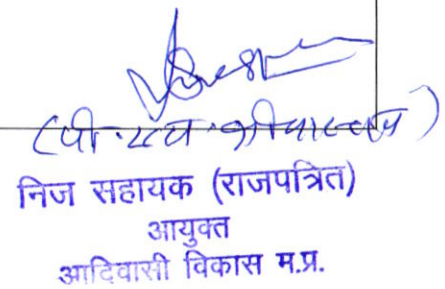 (पी. एच. श्रीवास्तव)
निज सहायक (राजपत्रित)
आयुक्त
आदिवासी विकास म.प्र.